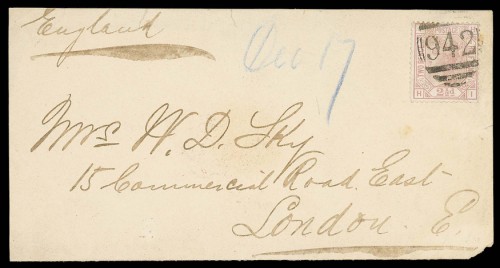 England
Dec 17
942
H I
2½d
Mrs. W. D. Sky
15 Commercial Road East
London. E.